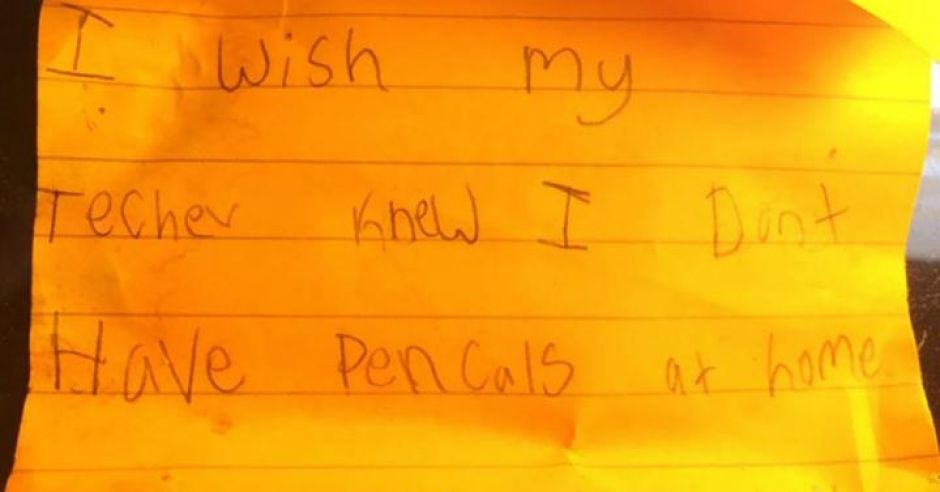 I wish my
Techer knew I Dont
Have pencals at home